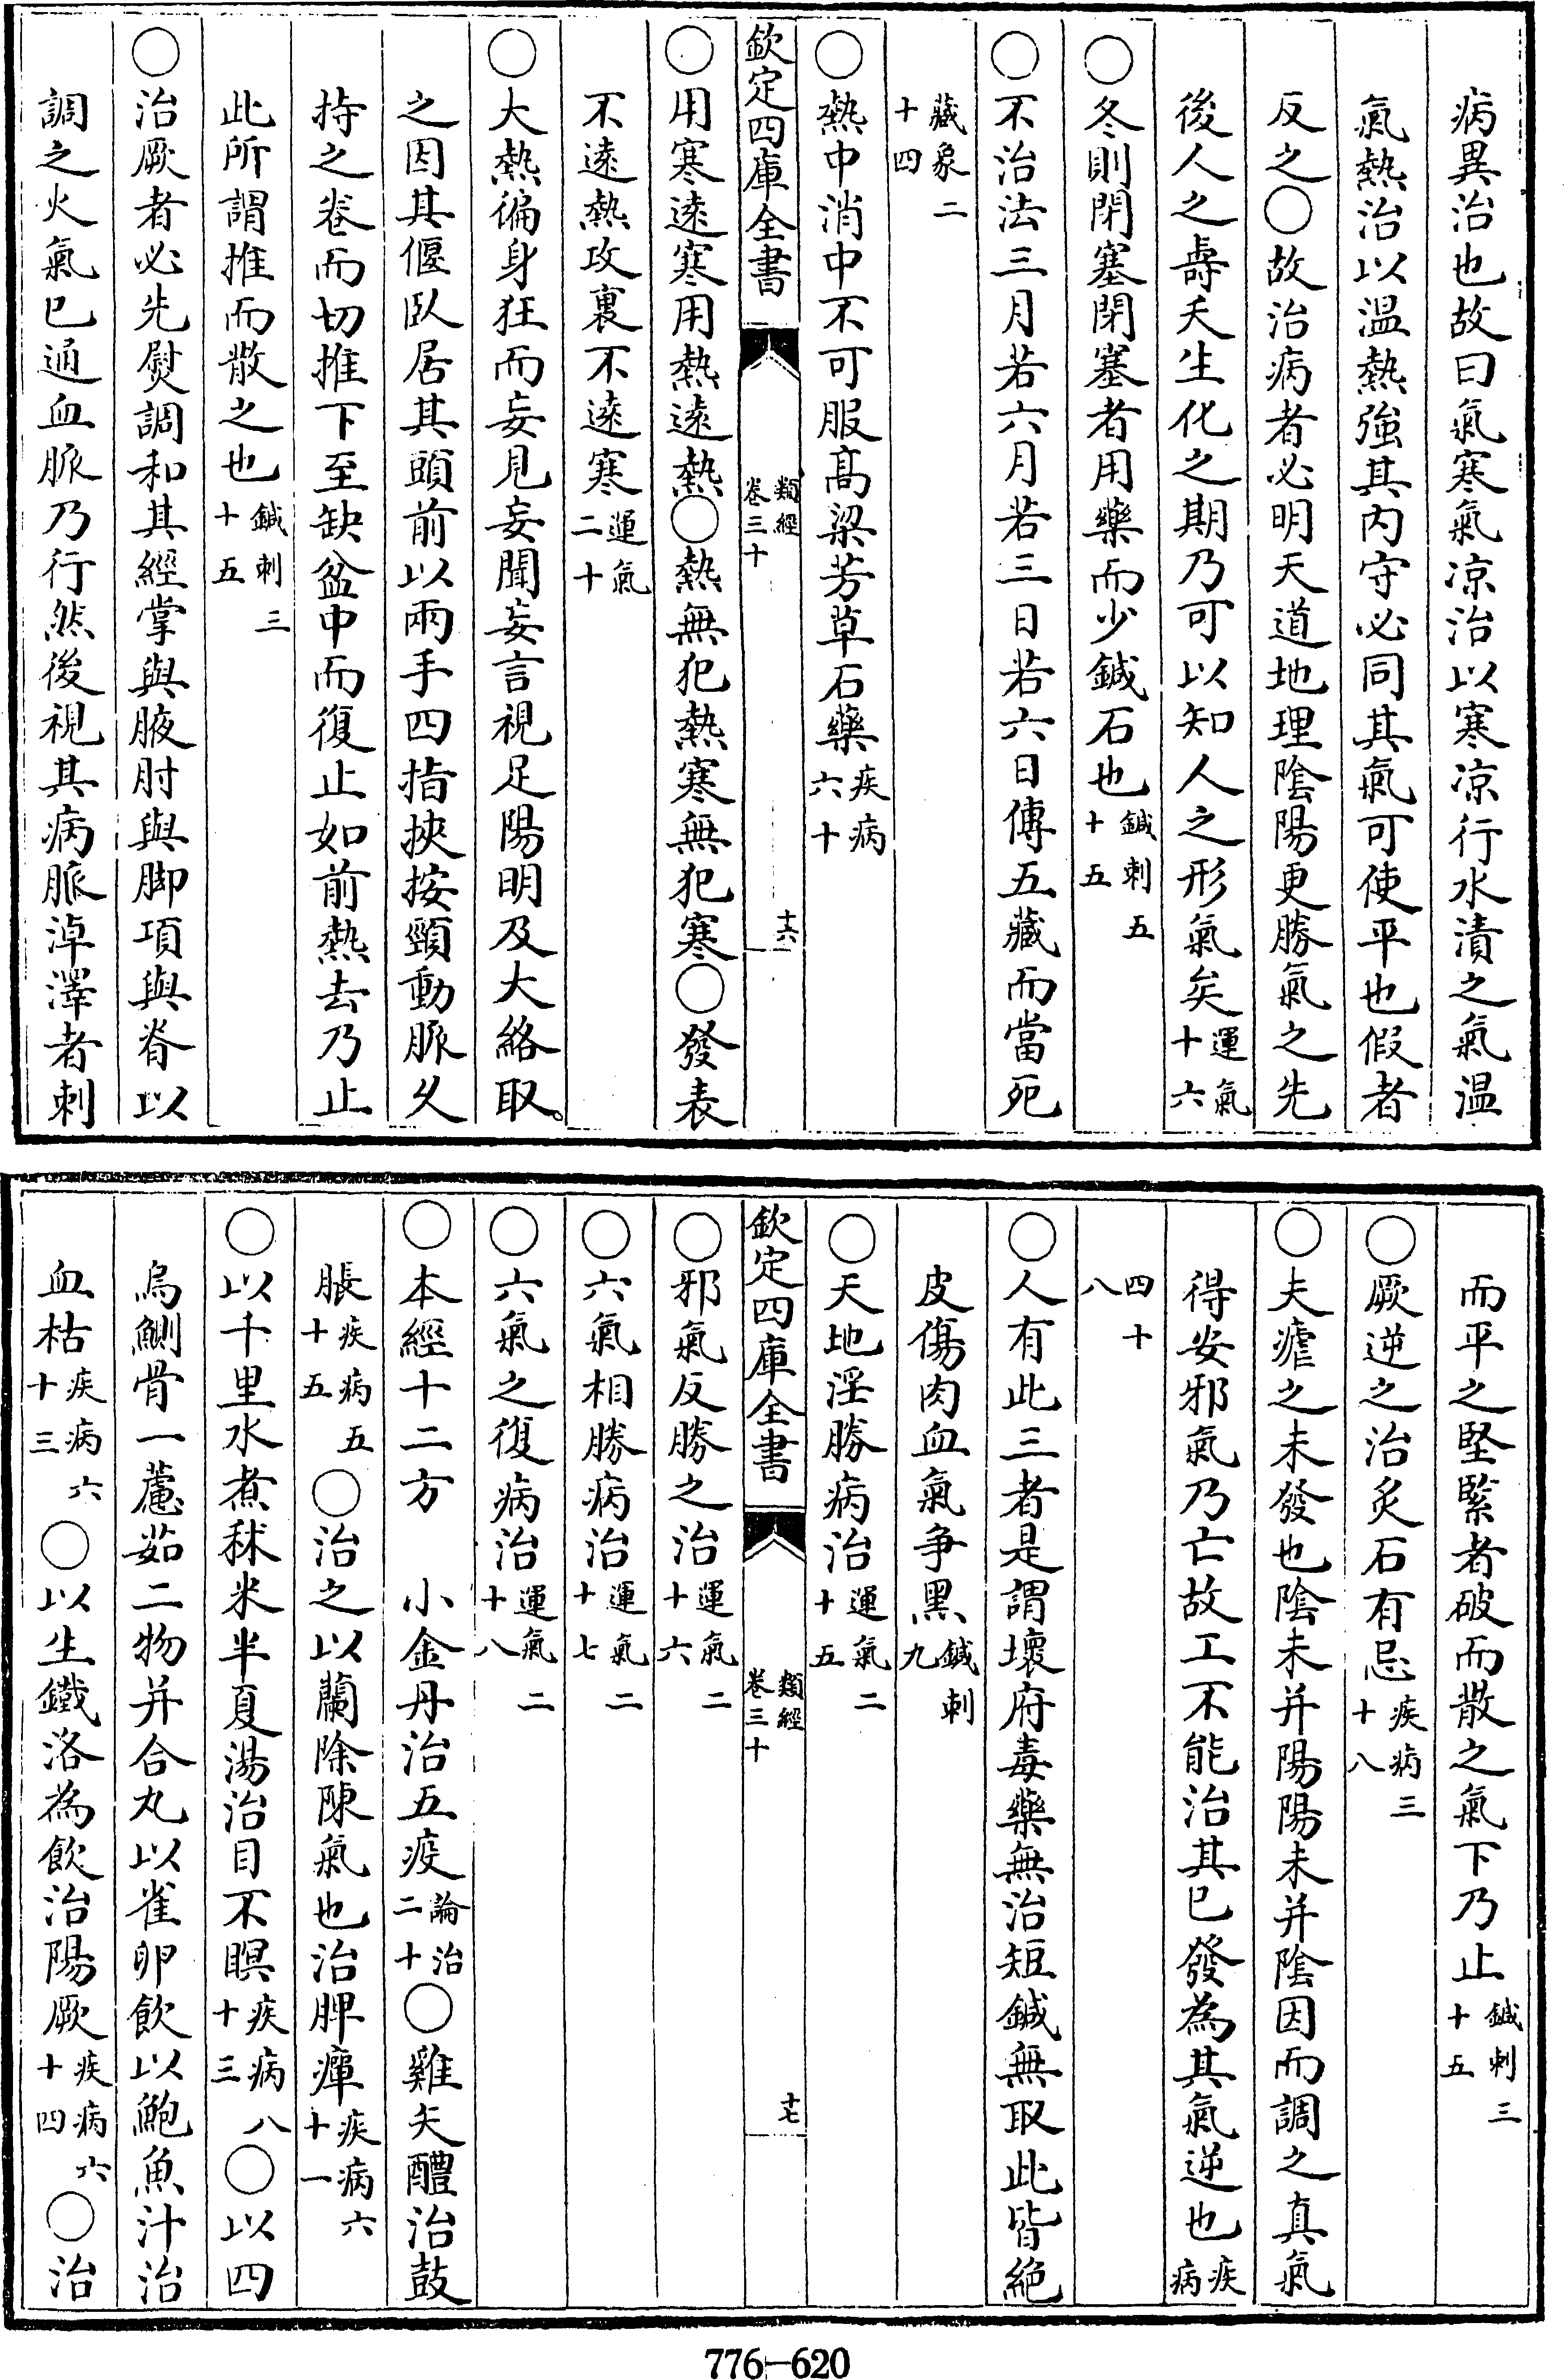 病異治也故曰氣寒氣凉治以寒凉行水漬之氣温
氣熱治以温熱強其內守必同其氣可使平也假者
反之○故治病者必明天道地理陰陽更勝氣之先
後人之壽夭生化之期乃可以知人之形氣矣運氣十六
○冬則閉塞閉塞者用藥而少鍼石也鍼刺五十五
○不治法三月若六月若三日若六日傳五藏而當死
藏象二十四
○熱中消中不可服髙梁芳草石藥疾病六十
欽定四庫全書 類經卷三十 十六
○用寒遠寒用熱遠熱○熱無犯熱寒無犯寒○發表
不逺熱攻裏不逺寒運氣二十
○大熱徧身狂而妄見妄聞妄言視足陽明及大絡取
之因其偃臥居其頭前以兩手四指挾按頸動脈久
持之卷而切推下至缺盆中而復止如前熱去乃止
此所謂推而散之也鍼刺三十五
○治厥者必先熨調和其經掌與腋肘與脚項與脊以
調之火氣已通血脈乃行然後視其病脈淖澤者刺
而平之堅緊者破而散之氣下乃止鍼刺三十五
○厥逆之治炙石有忌疾病三十八
○夫瘧之未發也陰未并陽陽未并陰因而調之真氣
得安邪氣乃亡故工不能治其已發為其氣逆也疾病
四十八
○人有此三者是謂壞府毒藥無治短鍼無取此皆絶
皮傷肉血氣爭黑鍼刺九
○天地淫勝病治運氣二十五
欽定四庫全書 類經卷三十 十七
○邪氣反勝之治運氣二十六
○六氣相勝病治運氣二十七
○六氣之復病治運氣二十八
○本經十二方 小金丹治五疫論治二十○雞矢醴治鼓
脹疾病五十五○治之以蘭除陳氣也治脾癉疾病六十一
○以千里水煮秫米半夏湯治目不瞑疾病八十三○以四
烏鰂骨一藘茹二物并合丸以雀卵飲以鮑魚汁治
血枯疾病六十三○以生鐵洛為飲治陽厥疾病六十四○治
776-620